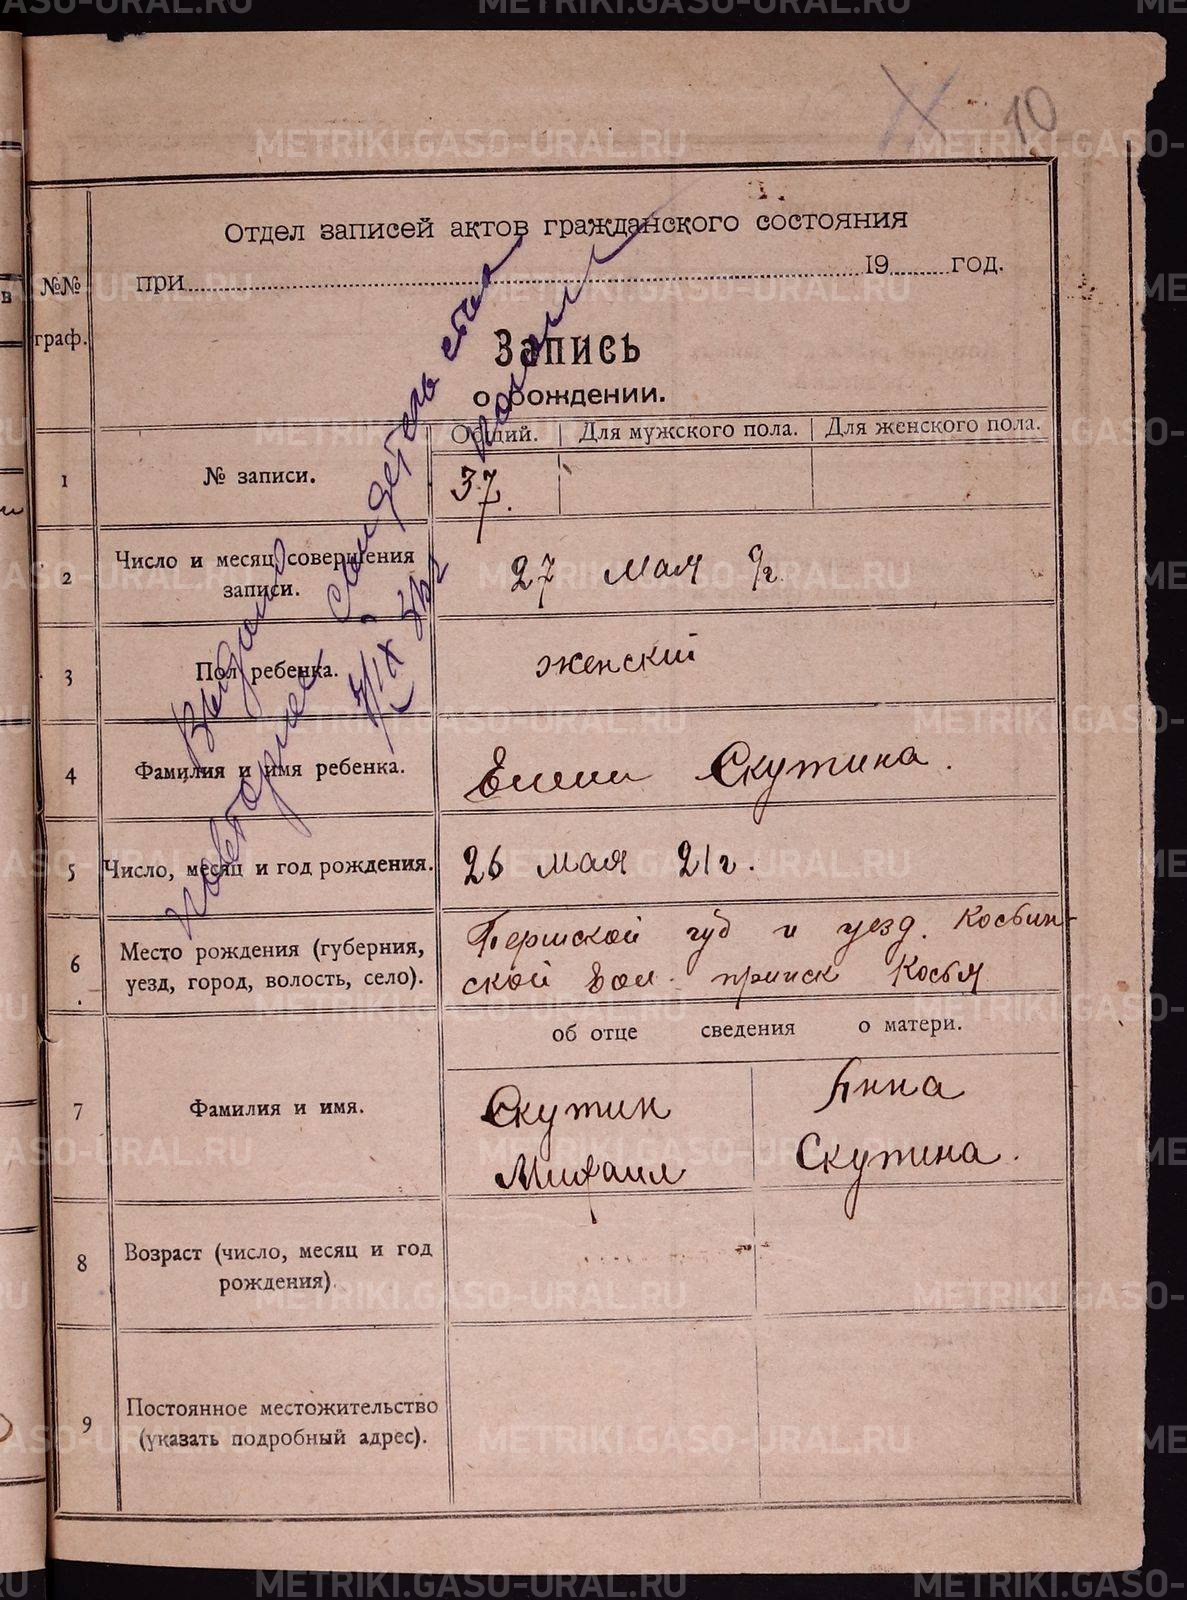 10
Отдел записей актов гражданского состояния
при 19 год.
№№
граф.
Запись
о рождении.
Общий. Для мужского пола. Для женского пола.
1 № записи. 37.
2 Число и месяц совершения
записи. 27 мая с/г.
3 Пол ребенка. женский
4 Фамилия и имя ребенка. Скутина.
5 Число, месяц и год рождения. 26 мая 21 г.
6 Место рождения (губерния,
уезд, город, волость, село).
Пермской губ и уезд. Косьвин-
ской вол. прииск Косья
об отце сведения о матери.
7 Фамилия и имя.
Скутин
Михаил
Анна
Скутина.
8 Возраст (число, месяц и год
рождения).
9 Постоянное местожительство
(указать подробный адрес).
Выдано
повторное свидетельство
METRIKI.GASO-URAL.RU